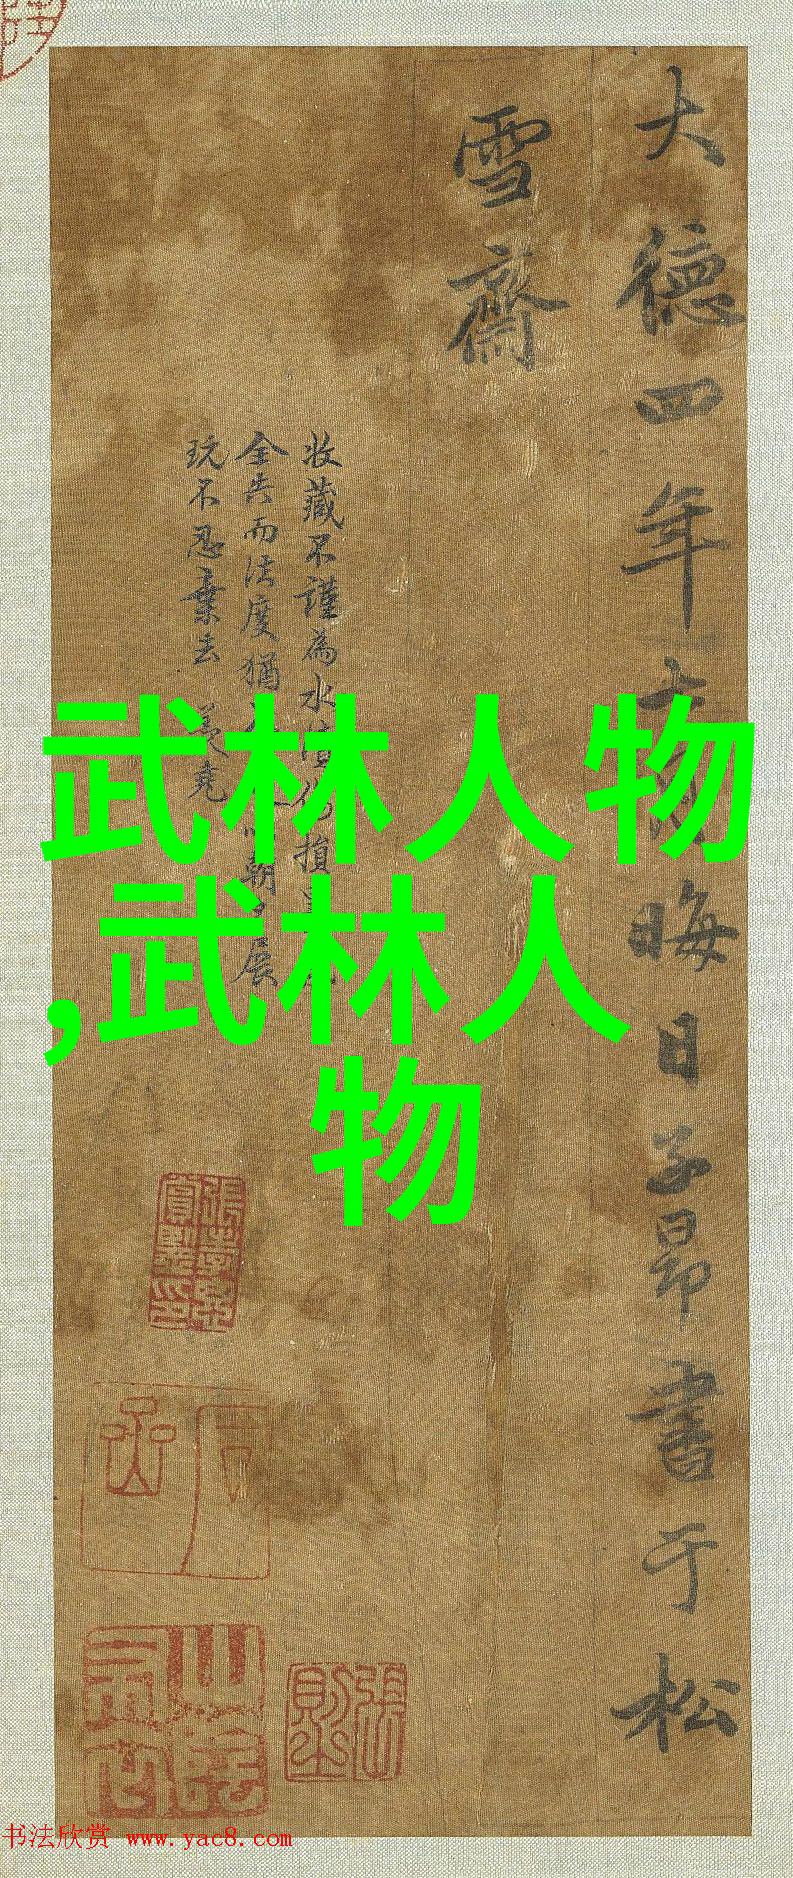 大德四年月晦日子昂書于松
雪齋
收藏不謹為水損
全失而法度猶朝夕展
玩不忍棄去
武林人物
,武林人
物
張則之
书法欣赏 www.yac8.com